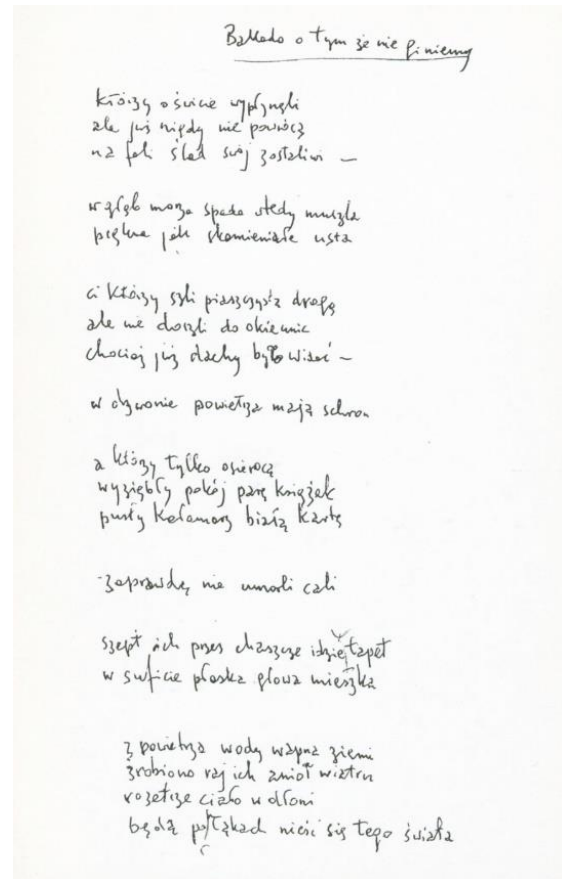 Ballada o tym że nie giniemy
którzy o świcie wypłynęli
ale już nigdy nie powrócą
na fali ślad swój zostawili —
w głąb morza spada wtedy muszla
piękna jak skamieniałe usta
ci którzy szli piaszczystą drogą
ale nie doszli do okiennic
chociaż już dachy było widać —
w dzwonie powietrza mają schron
a którzy tylko osierocą
wyziębły pokój parę książek
pusty kałamarz białą kartę
zaprawdę nie umarli cali
szept ich przez chaszcze idzie tapet
w suficie płaska głowa mieszka
z powietrza wody wapna ziemi
zrobiono raj ich anioł wiatru
rozetrze ciało w dłoni
będą po łąkach nieść się tego świata